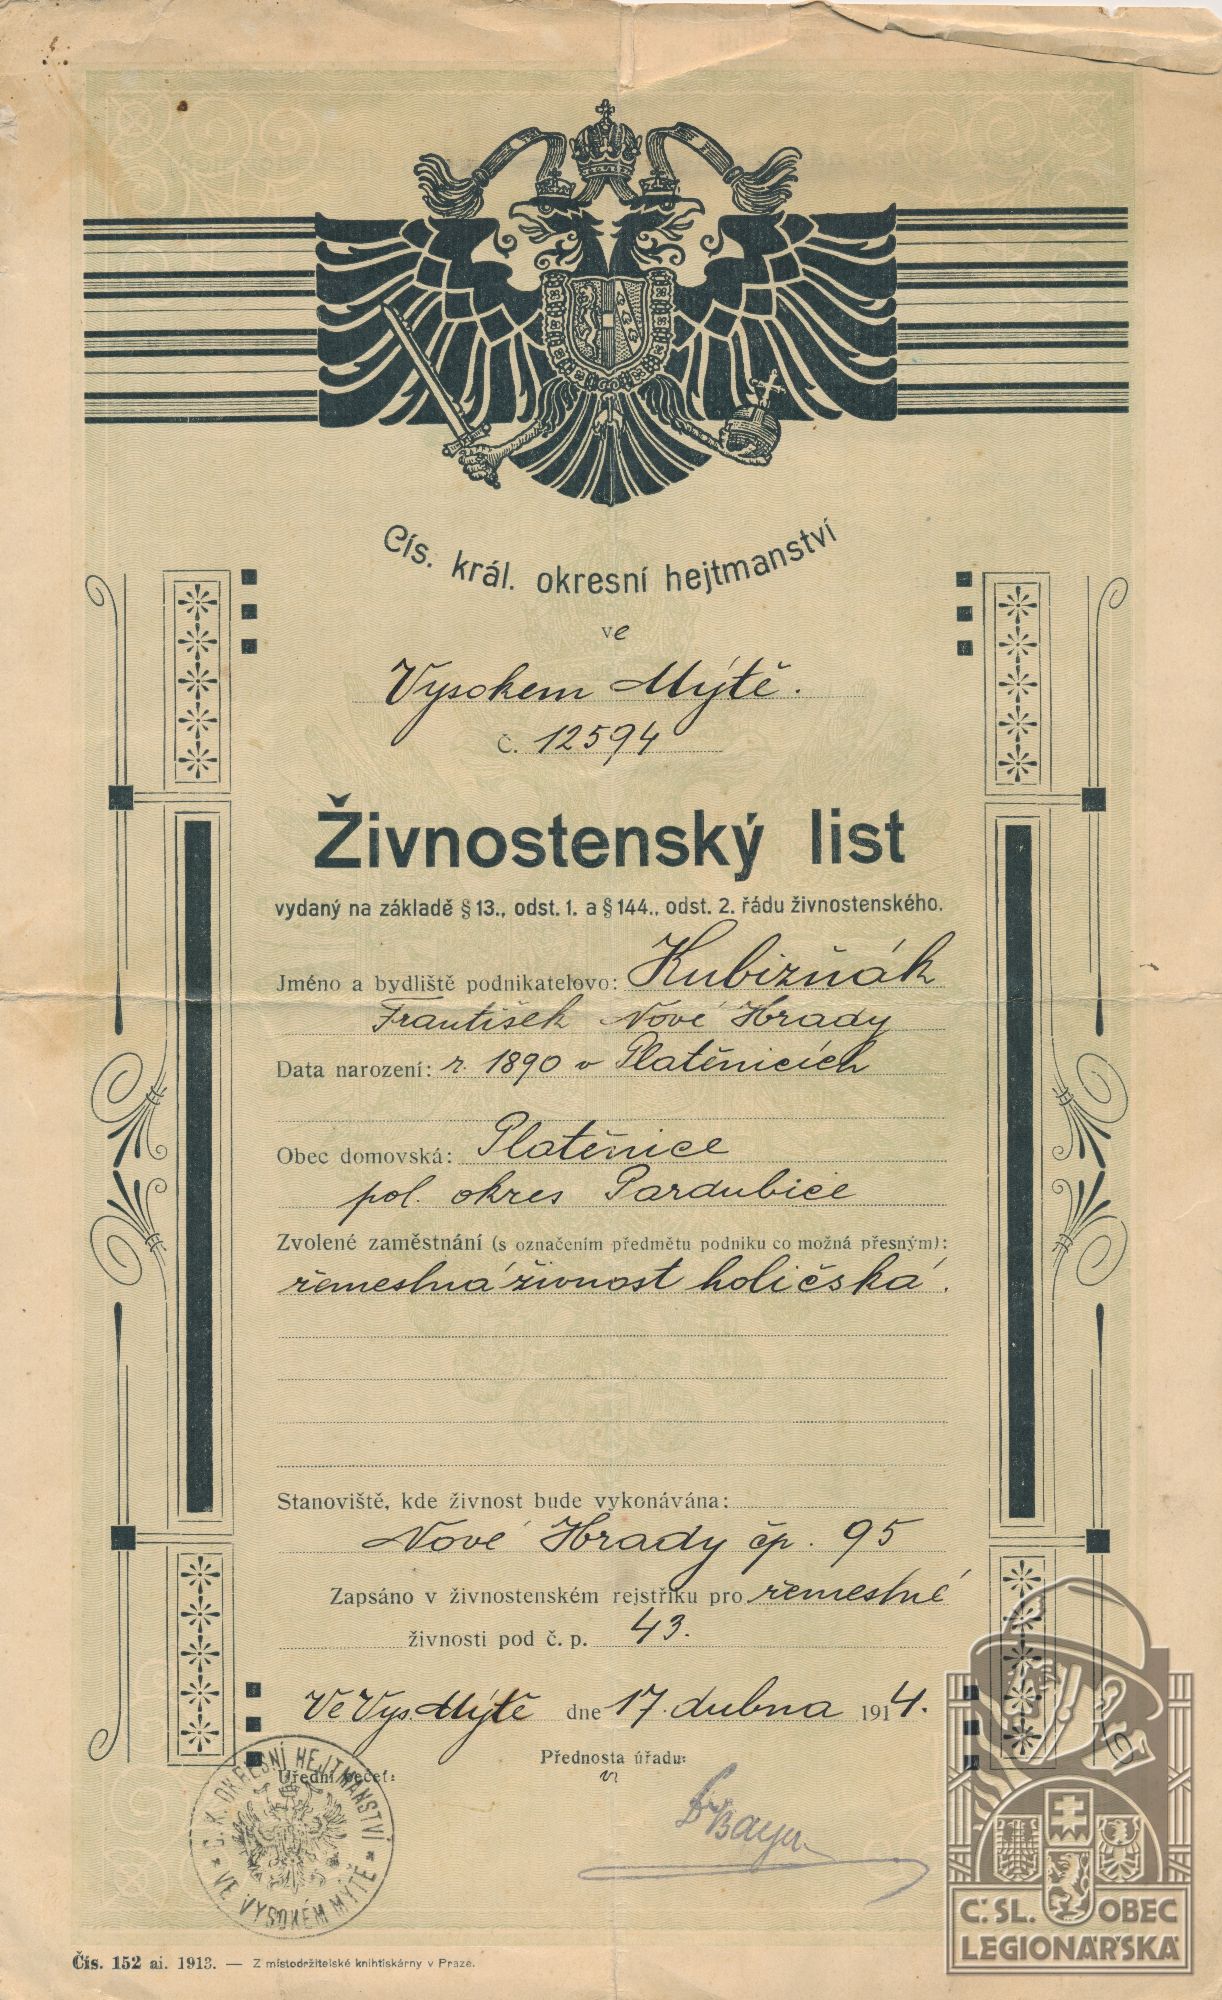 Cís. král. okresní hejtmanství
ve
Vysokem Mýtě.
Č. 12594
Živnostenský list
vydaný na základě § 13., odst. 1. a § 144., odst. 2. řádu živnostenského.
Jméno a bydliště podnikatelovo: Kubizňák
František Nové Hrady
Data narození: r. 1890 v Platěnicích
Obec domovská: Platěnice
pol. okres Pardubice
Zvolené zaměstnání (s označením předmětu podniku co možná přesným):
řemeslná živnost holičská.
Stanoviště, kde živnost bude vykonávána:
Nové Hrady čp. 95
Zapsáno v živnostenském rejstříku pro řemeslné
živnosti pod č. p. 43.
Ve Vys. Mýtě dne 17. dubna 1914.
Přednosta úřadu:
Úřední pečeť:
C. K. OKRESNÍ HEJTMANSTVÍ
VE VYSOKÉM MÝTĚ
Čís. 152 ai. 1913. — Z místodržitelské knihtiskárny v Praze.
Č. SL. OBEC
LEGIONÁŘSKÁ